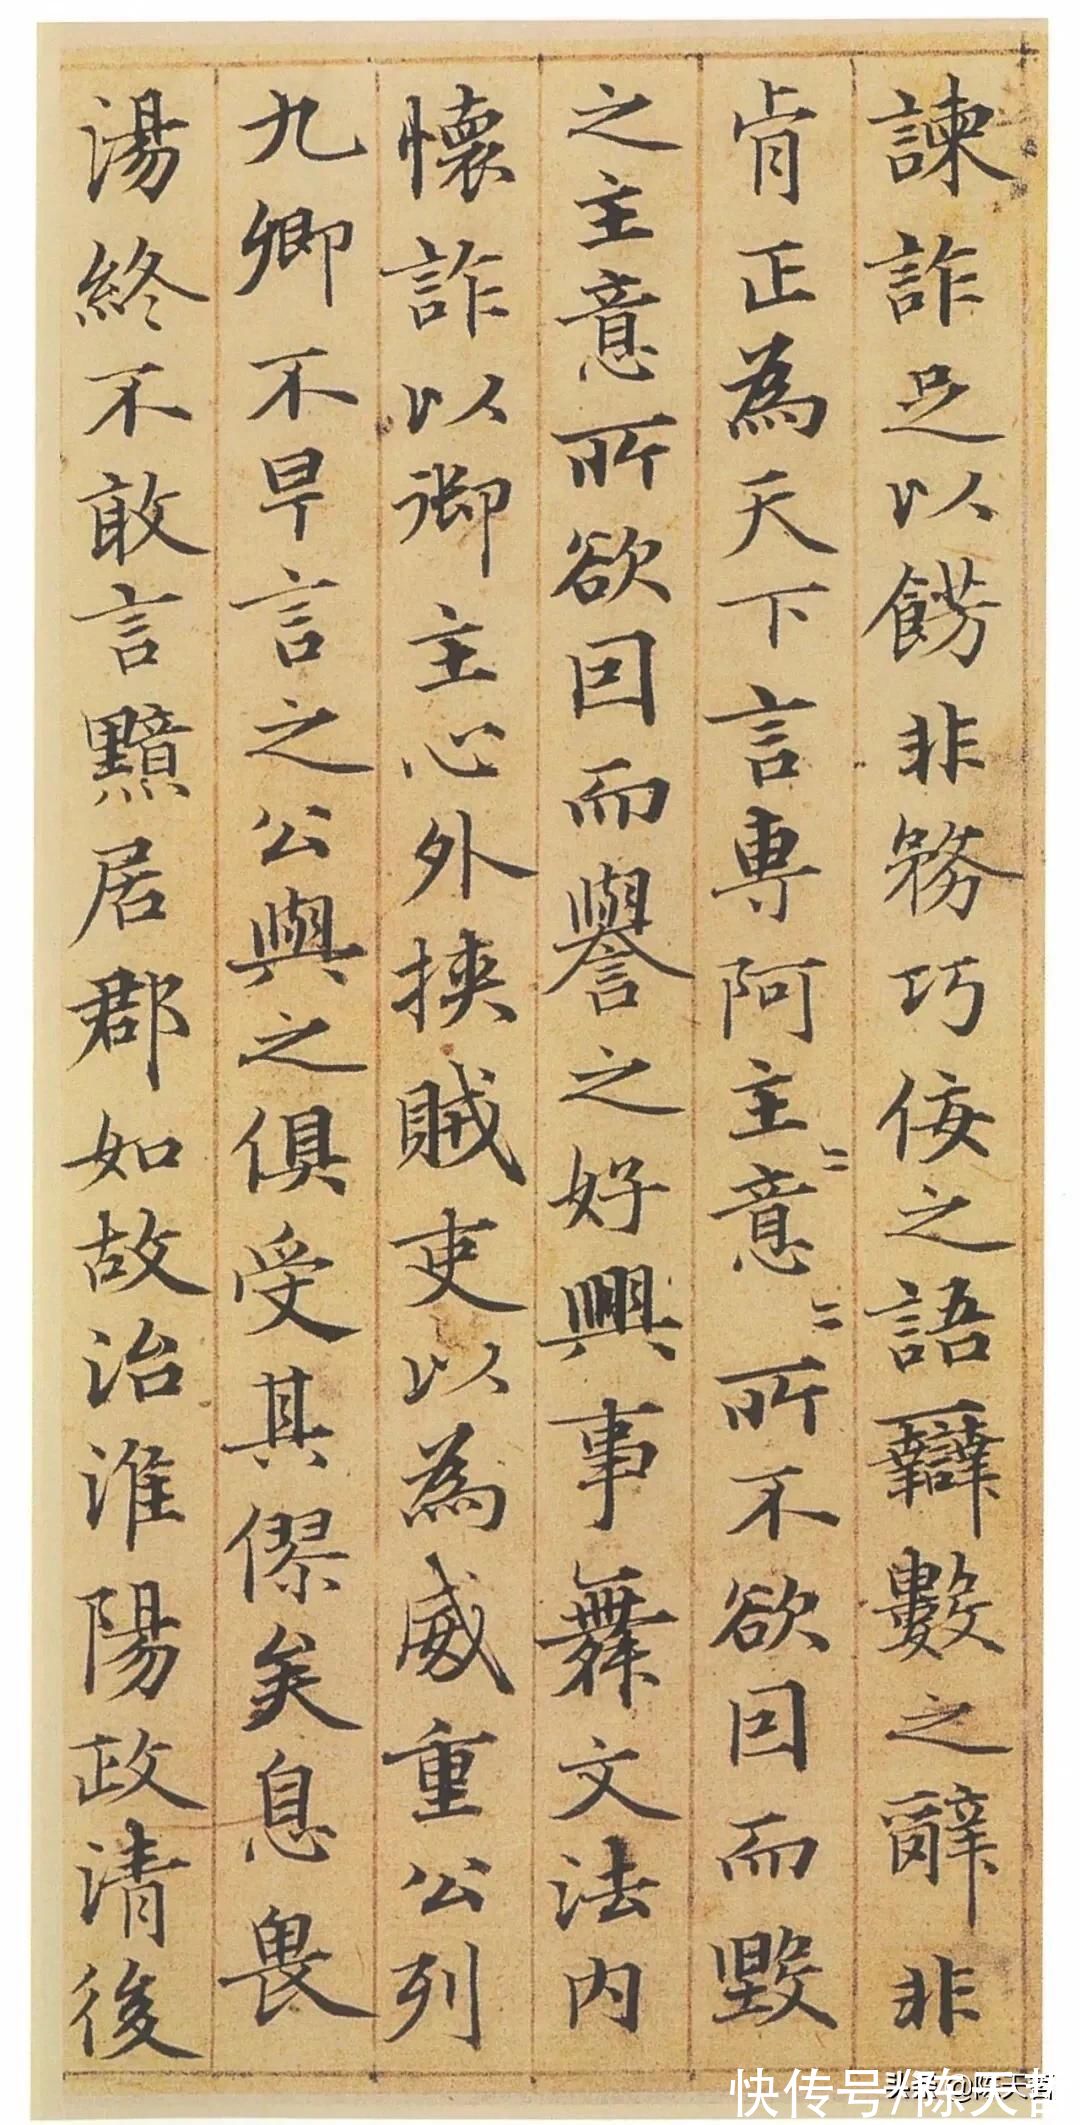 諫詐足以餝非務巧佞之語辯數之辭非
肯正為天下言專阿主〻意〻所不欲因而毀
之主意所欲因而譽之好興事舞文法內
懷詐以御主心外挾賊吏以為威重公列
九卿不早言之公與之俱受其僇矣息畏
湯終不敢言黯居郡如故治淮陽政清後
快传号/陈天